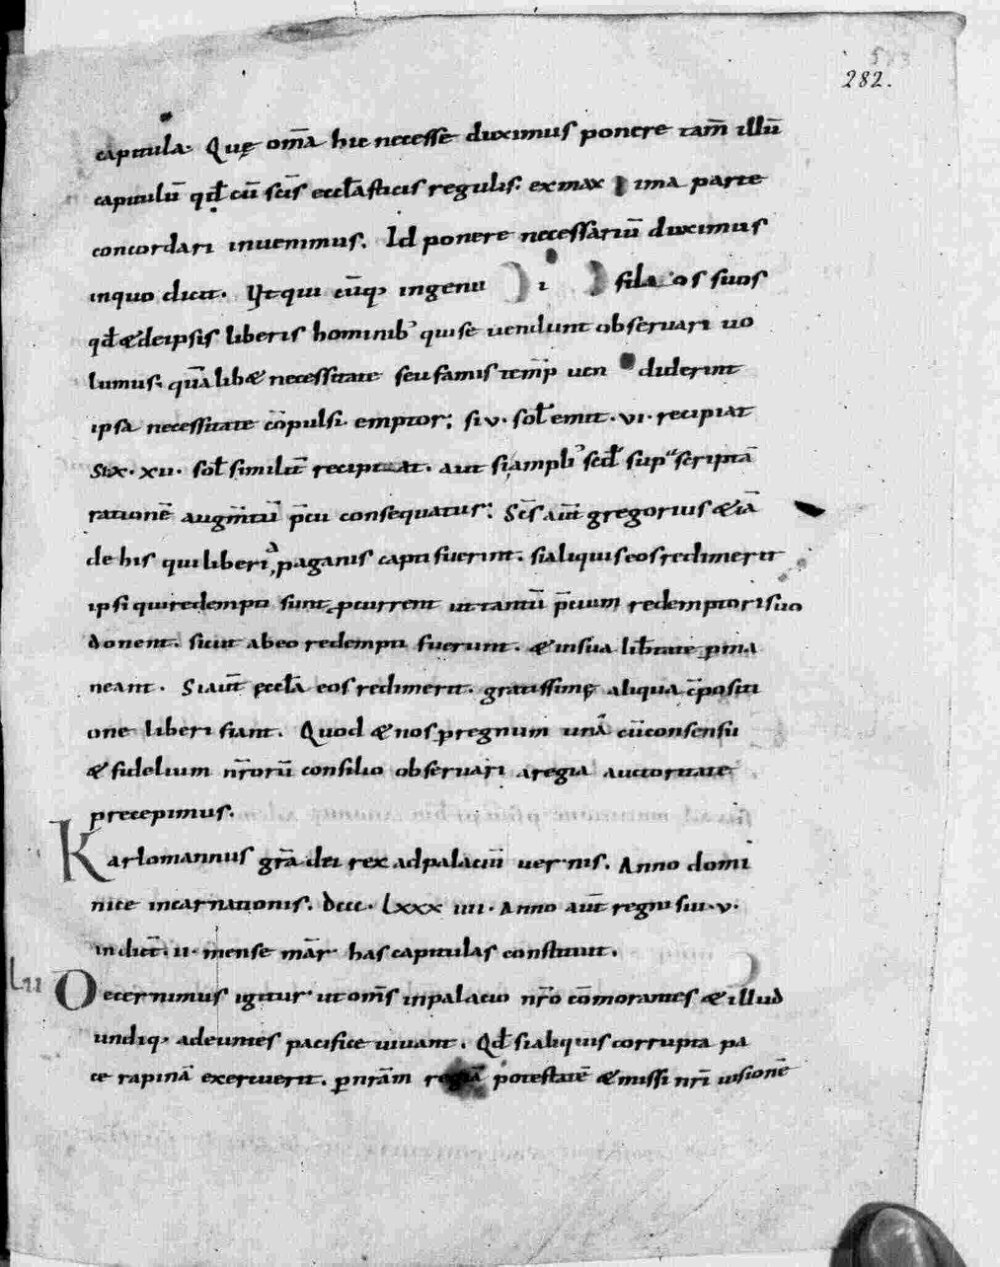 282.
capitula. Quę om̅a hic necesse duximus ponere tam̅ illu̅
capitulu̅ qđ cu̅ sc̅is eccl̅asticis regulis. ex max ima parte
concordari inuenimus. Id ponere necessariu̅ duximus
inquo dicit. Ut qui cu̅q; ingenui filios suos
qđ &deipsis liberis hominib' quise uendunt obseruari uo
lumus. qua̅lib& necessitate seu famis temp̅ uen diderint
ipsa necessitate co̅pulsi. emptor; si v. sol̅ emit. vi. recipiat
Si x. xii. sol̅ similit̅ recipiat. aut si ampli' secđ sup scripta̅
ratione̅ augm̅tu̅ p̅cii consequatur. Sc̅s aut̅ gregorius &ia̅
de his qui liberi, a paganis capti fuerint. si aliquis eos redimerit
ipsi qui redempti sunt, ꝓcurrent ut tantu̅ p̅cium redemptori suo
donent. sicut ab eo redempti fuerunt. & insua lib̅tate ꝑma
neant. Si aut̅ ęccl̅a eos redimerit. gratissimę aliqua c̅positi
one liberi fiant. Quod & nos ꝑregnum una̅ cu̅consensu
& fidelium nr̅oru̅ consilio obseruari aregia auctoritate
precepimus.
Karlomannus gr̅a dei rex adpalaciu̅ uernis. Anno domi
nice incarnationis. dccc. lxxx iiii. Anno aut̅ regni sui. v.
indict̅. ii. mense mar̅ has capitulas constituit.
LII Decernimus igitur ut om̅s inpalacio nr̅o co̅morantes & illud
undiq; adeuntes pacifice uiuant. Qđ si aliquis corrupta pa
ce rapina̅ exercuerit. ꝑ nr̅am regia̅ potestate̅ & missi nr̅i iusione̅